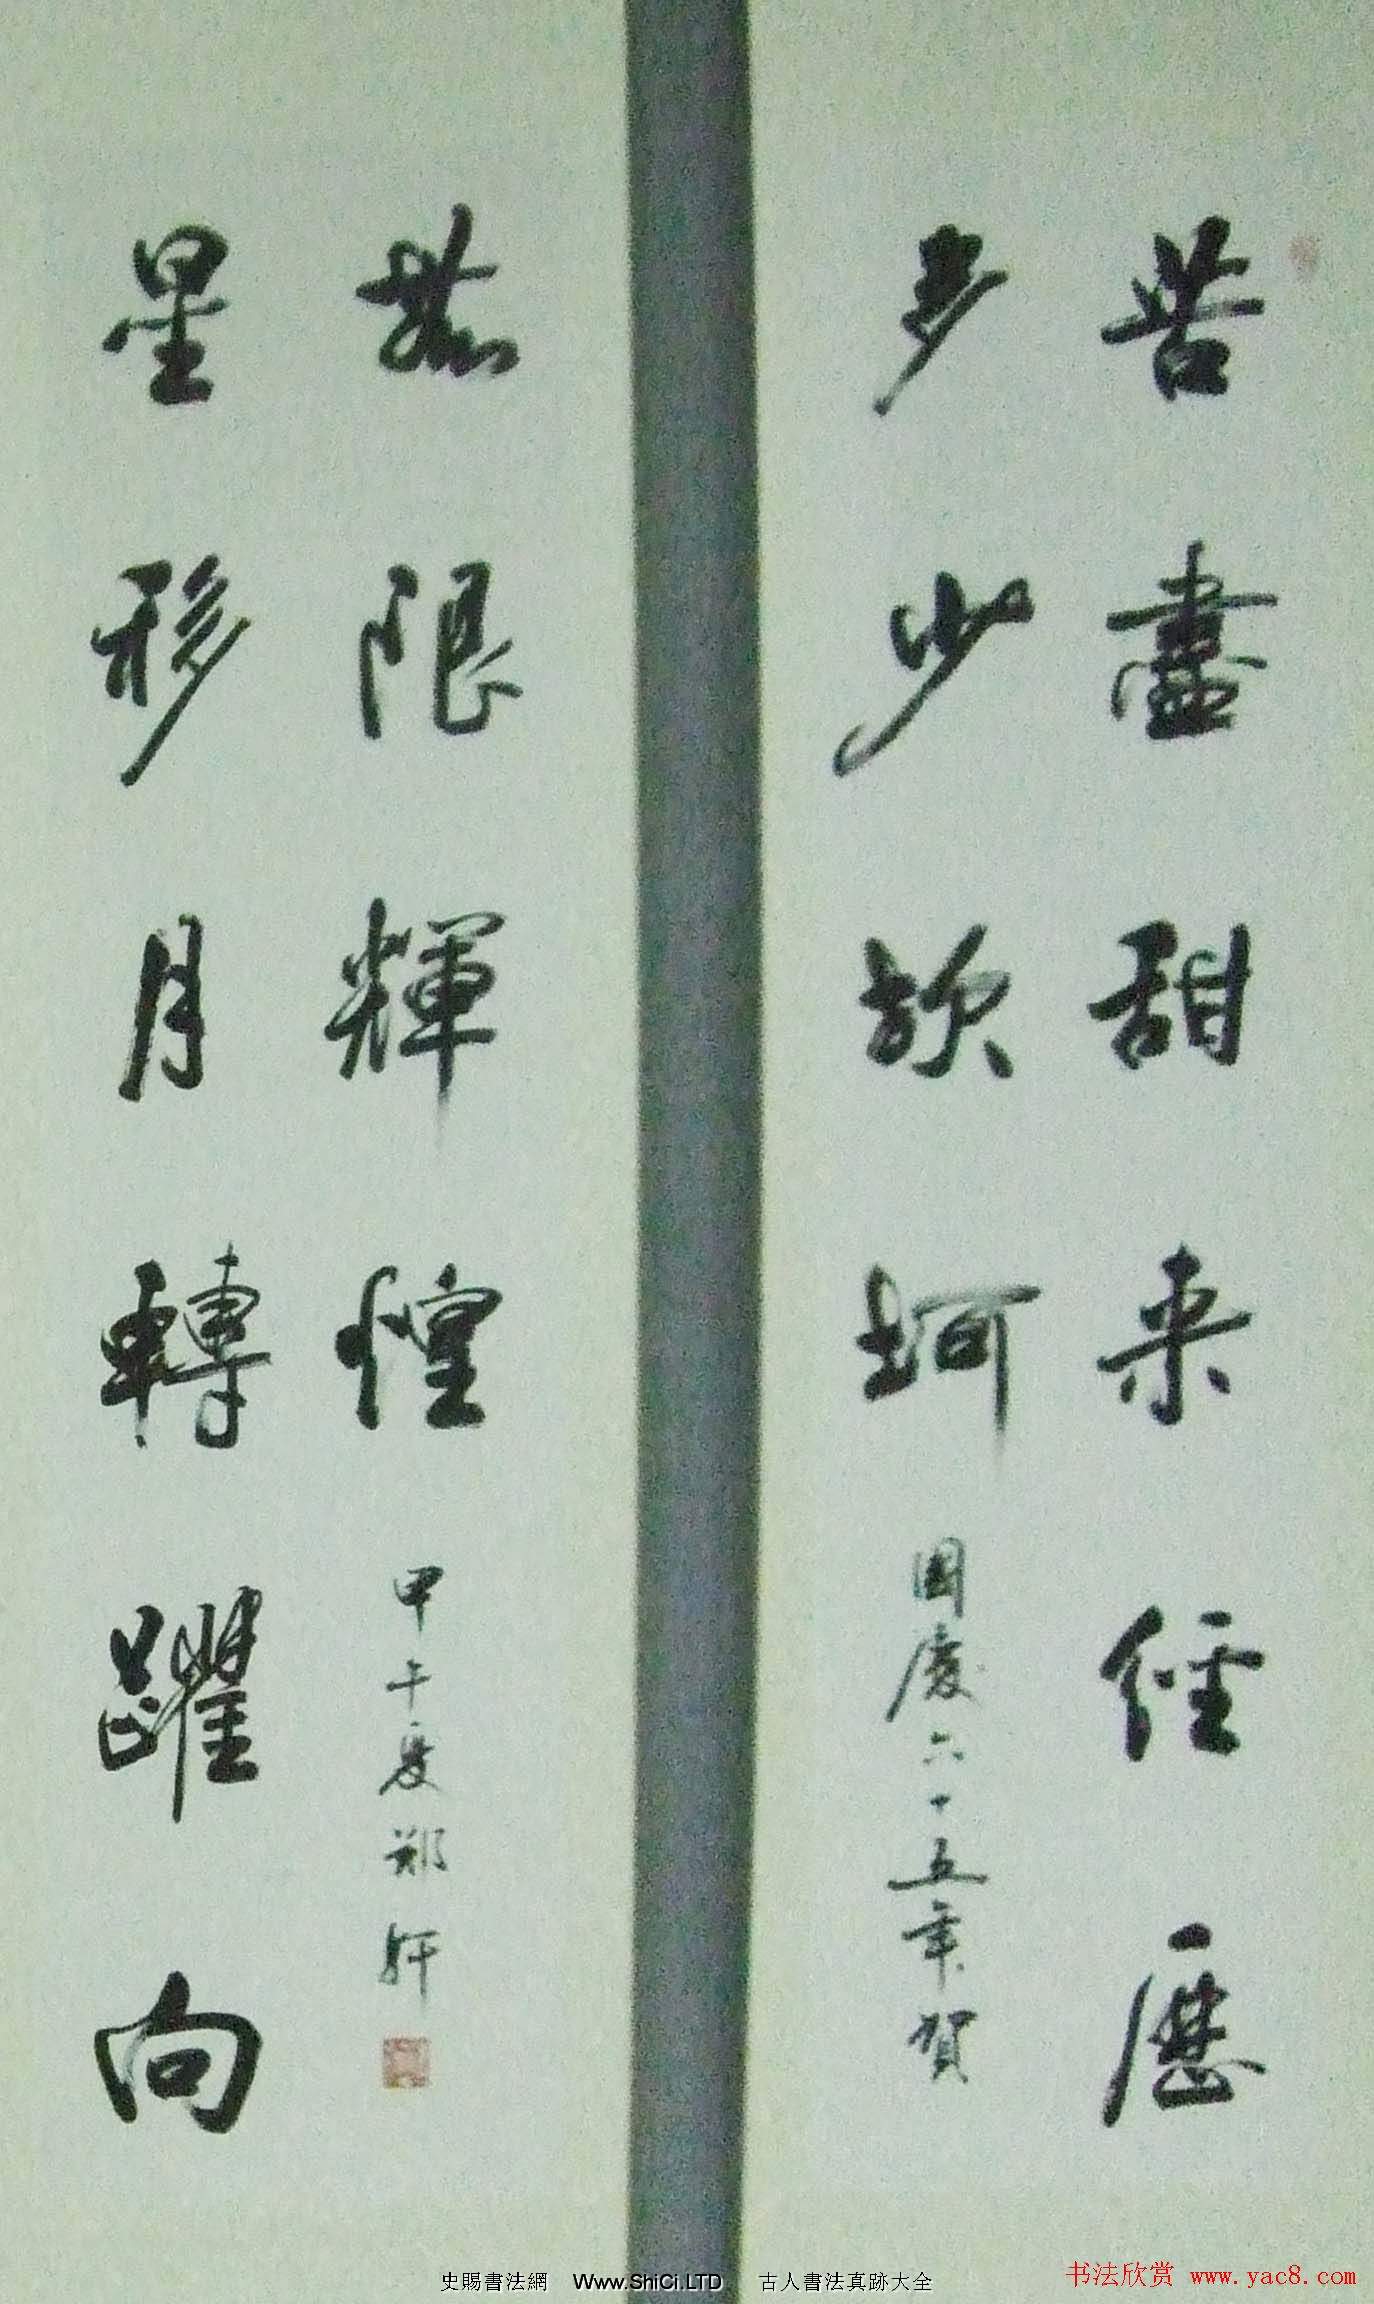 苦盡甜来經歷
多少坎坷
國慶六十五年賀
星移月轉躍向
無限輝煌
甲午夏郑
史賜書法網 Www.ShiCi.LTD 古人書法真跡大全
书法欣赏 www.yac8.com